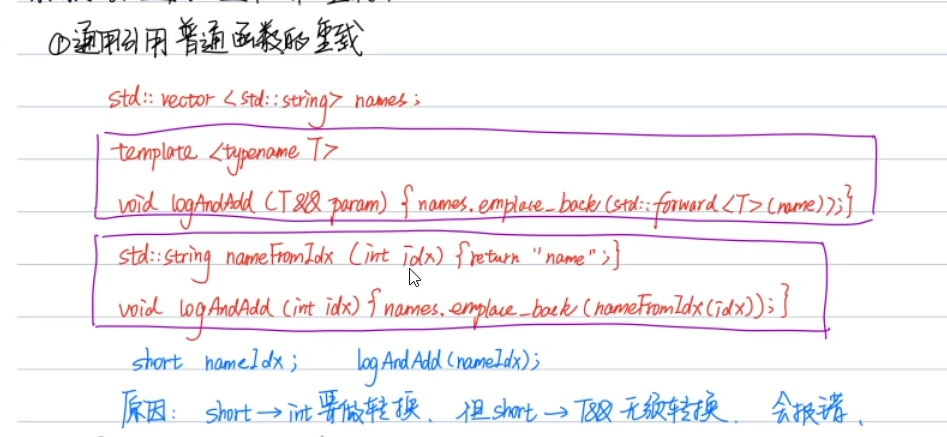 ①通用引用普通函数的重载
std::vector <std::string> names;
template <typename T>
void logAndAdd (T&& param) { names.emplace_back(std::forward<T>(name));}
std::string nameFromIdx (int idx) {return "name";}
void logAndAdd (int idx) { names.emplace_back (nameFromIdx(idx));}
short nameIdx; logAndAdd(nameIdx);
原因: short→int 要做转换、但short→T&& 无须转换. 会报错、